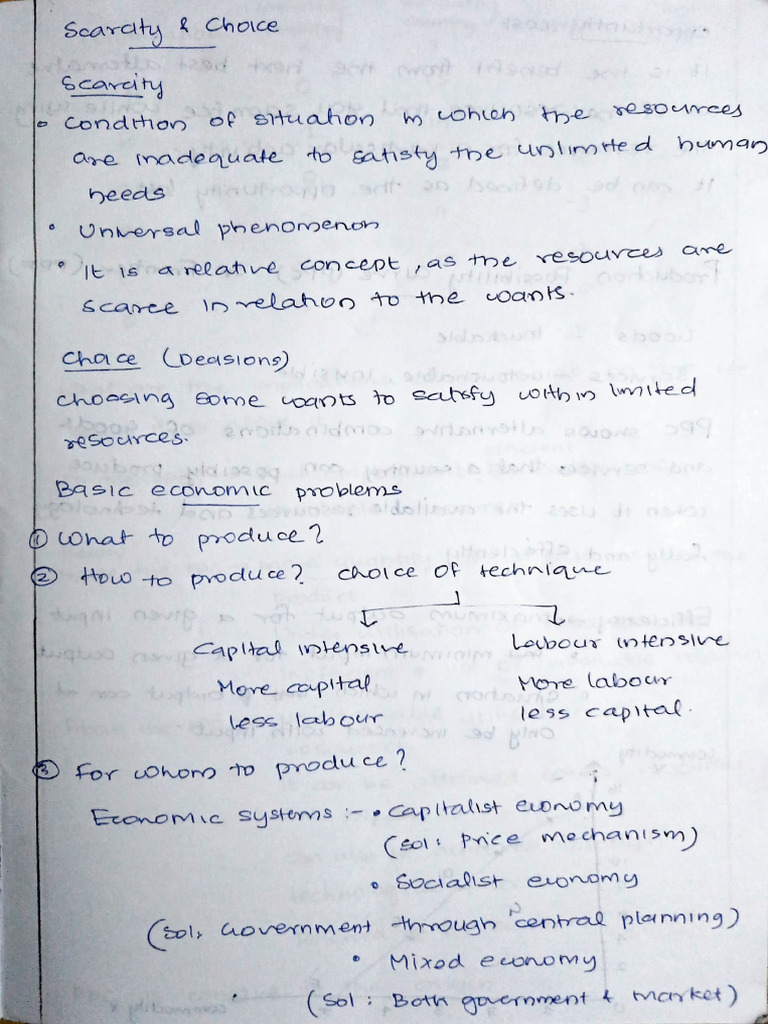 Scarcity & Choice
Scarcity
• Condition of situation in which the resources
are inadequate to satisfy the unlimited human
needs
• Universal phenomenon
• It is a relative concept, as the resources are
scarce in relation to the wants.
Choice (Decisions)
choosing some wants to satisfy within limited
resources.
Basic economic problems
① What to produce?
② How to produce? choice of technique
Capital intensive Labour intensive
More capital More labour
less labour less capital.
③ For whom to produce?
Economic systems :- • Capitalist economy
(Sol: Price mechanism)
• Socialist economy
(Sol: Government through central planning)
• Mixed economy
(Sol: Both government & market)